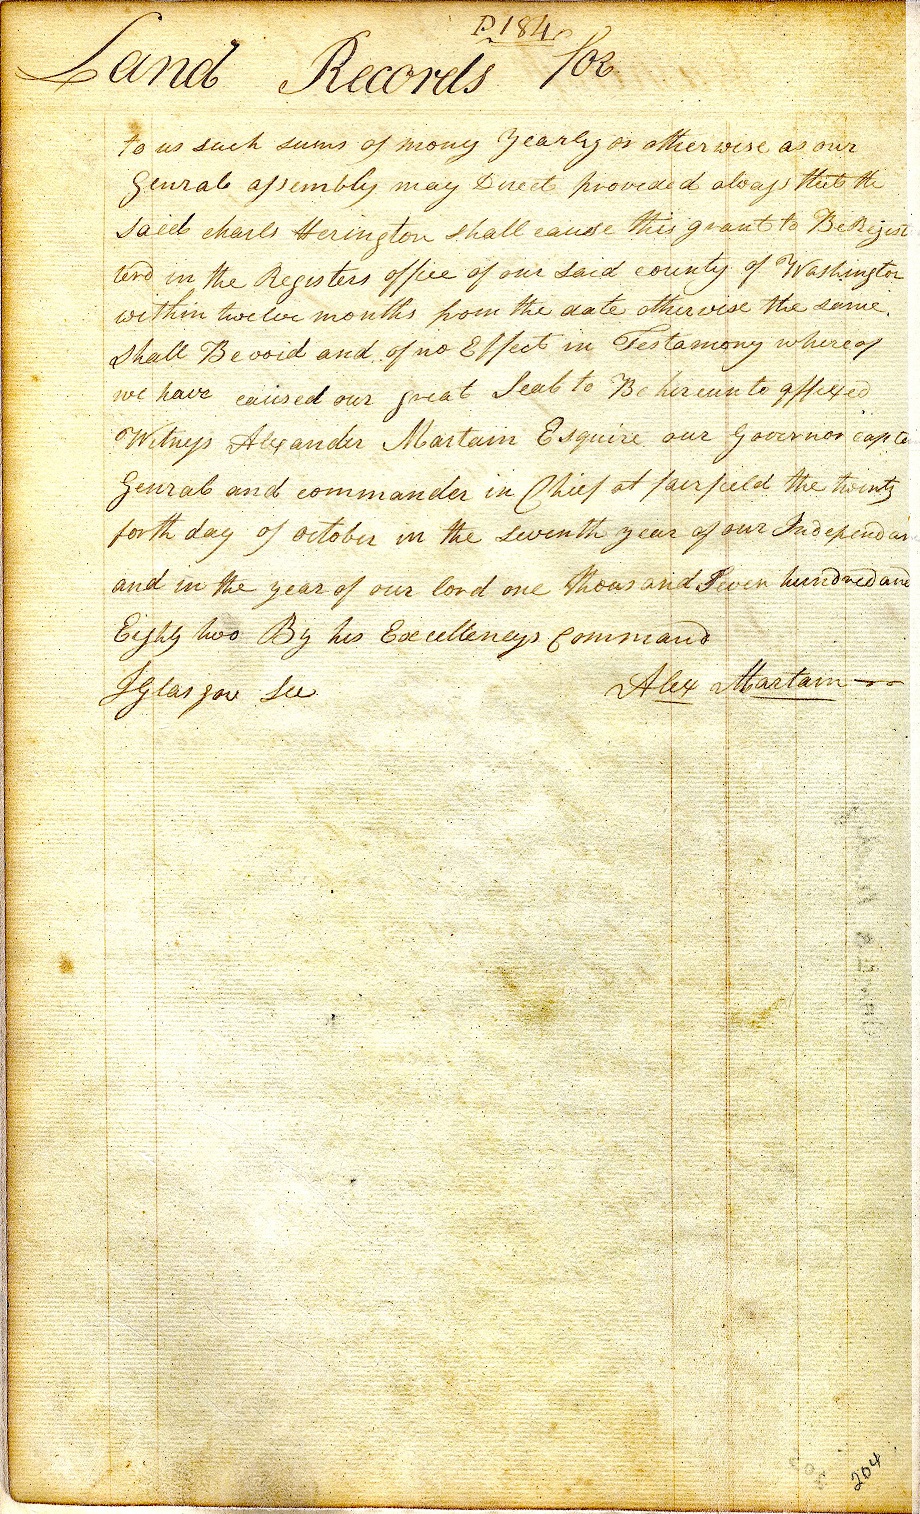 P. 184
Land Records for
to us such sums of mony Yearly or otherwise as our
Genral assembly may Direct provided always that the
said charls Herington shall cause this grant to Be Regist
terd in the Registers office of our said county of Washington
within twelve months from the date otherwise the same
shall Be void and of no Effect in Testamony whereof
we have caused our great Seal to Be hereunto affixed
Witness Alexander Martain Esquire our Governor capt
Genral and commander in Chief at fairfield the twenty
forth day of october in the seventh year of our Independan
and in the year of our lord one thousand Seven hundred and
Eighty two By his Excellencys Command
J Glasgow Sec Alex Martain
204